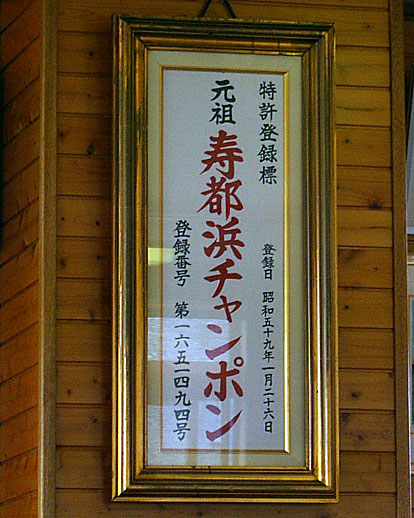 特許登録標
登録日 昭和五十九年一月二十六日
元祖
寿都浜チャンポン
登録番号 第一六五一四九四号